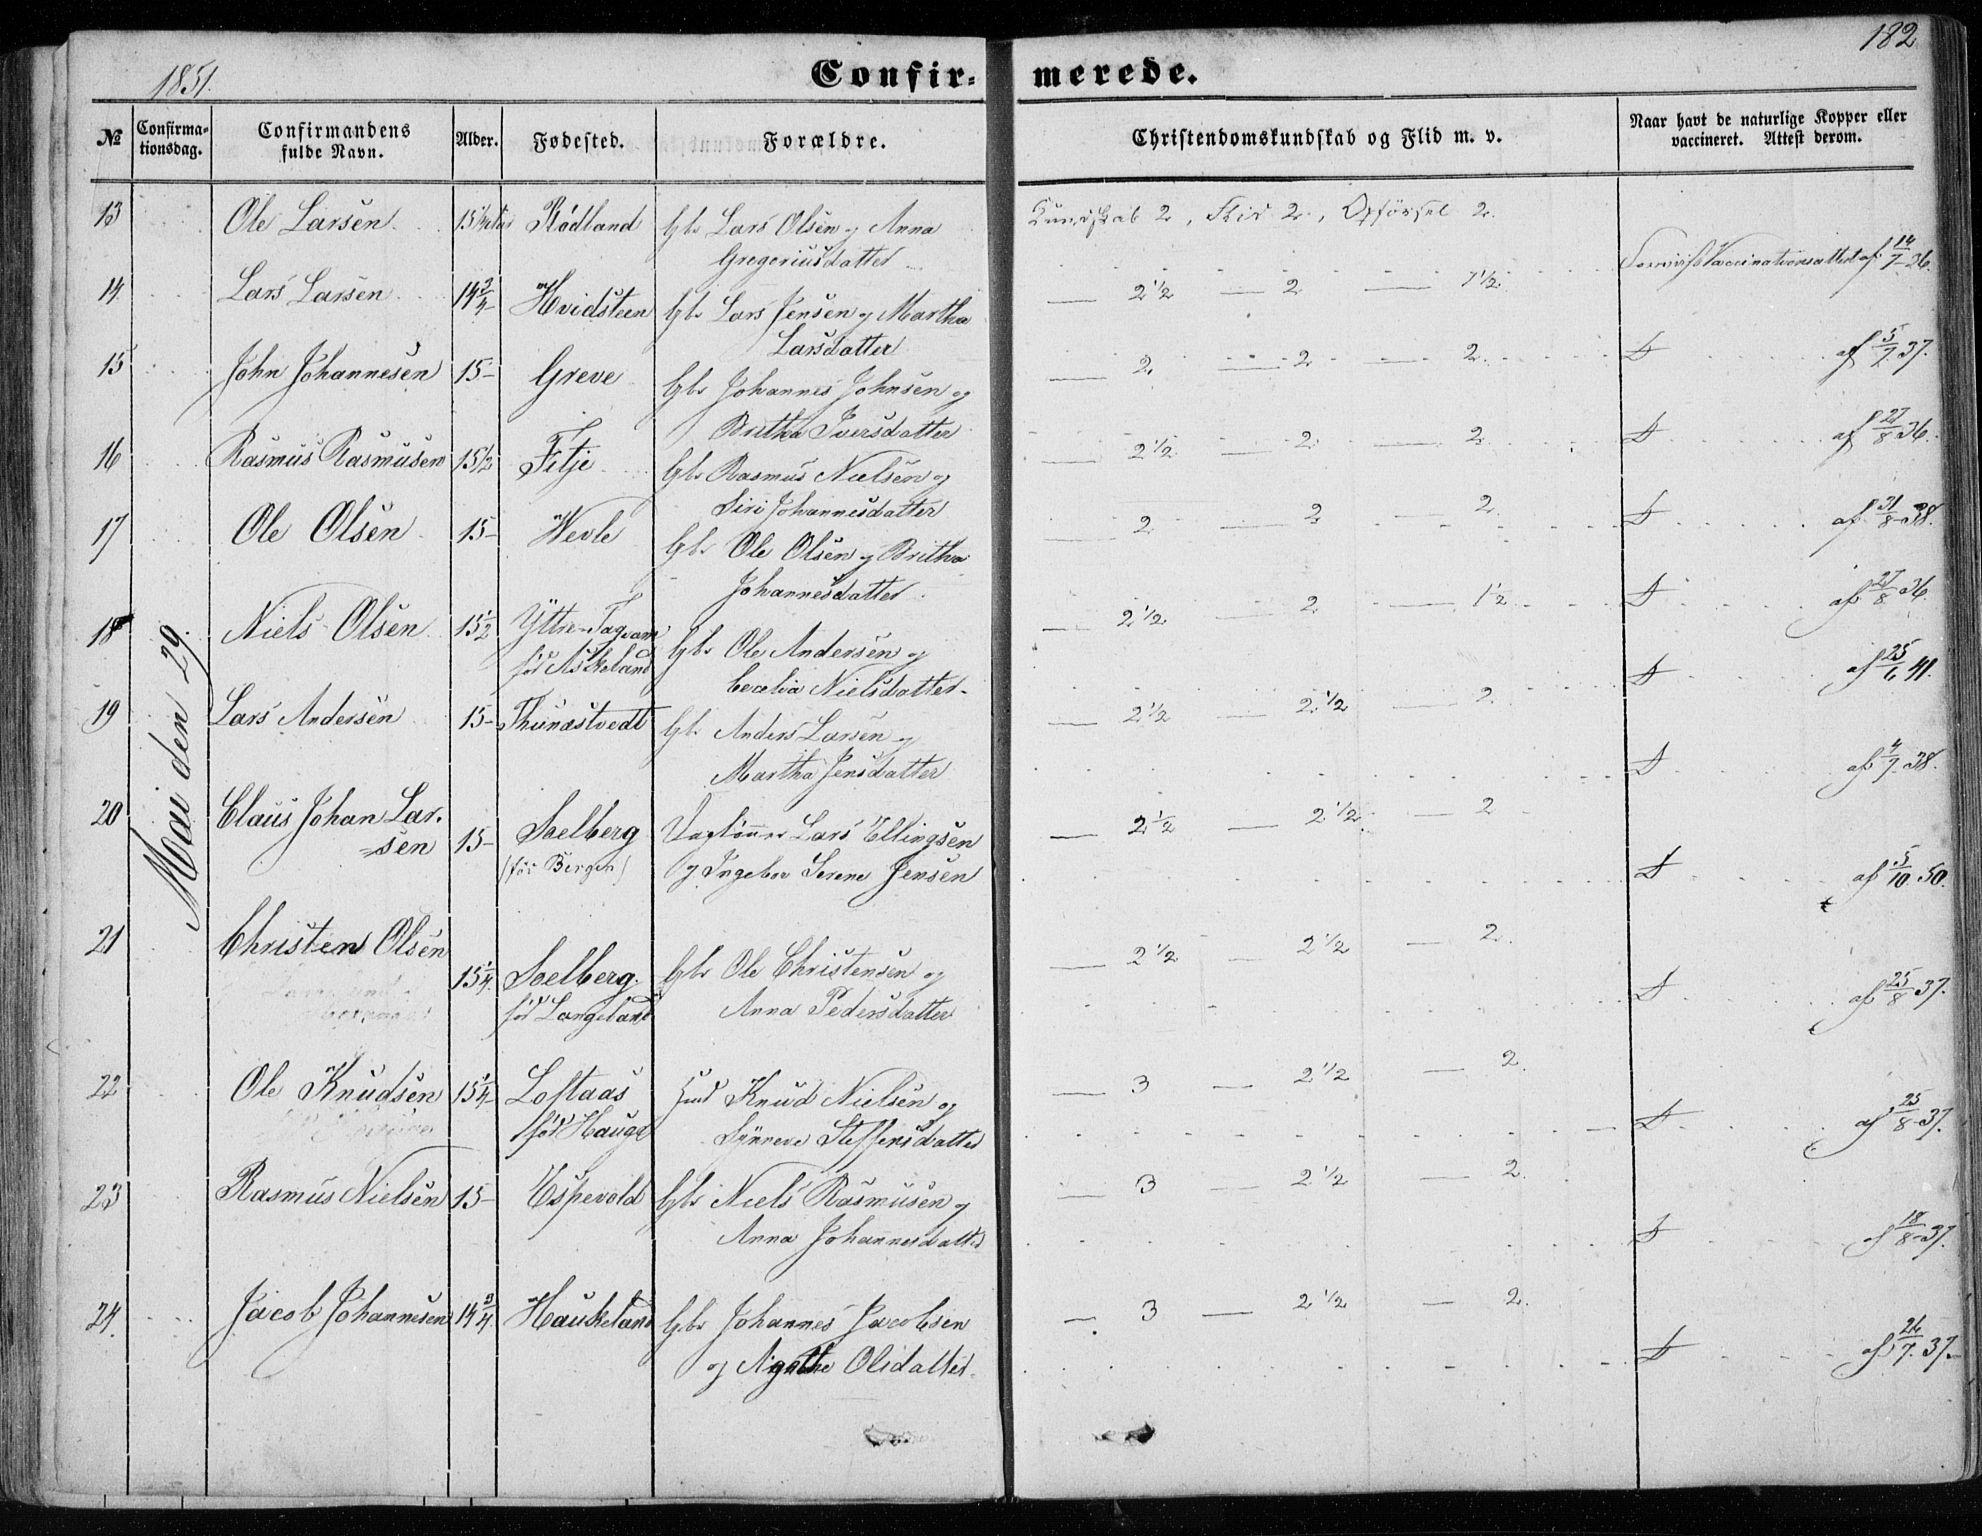 182
1851.
Confir= merede.
№ Confirma-tionsdag. Confirmandens fulde Navn. Alder. Fødested. Forældre. Christendomskundskab og Flid m. v. Naar havt de naturlige Kopper eller vaccineret. Attest derom.
Mai den 29.
13 Ole Larsen 15 Rødland Gbr Lars Olsen og Anna Kundskab 2, Flid 2, Opførsel 2.
Gregoriusdatter Vaccinationsattest af 14/7 36.
14 Lars Larsen 14 3/4 Hvidsteen Gbr Lars Jensen og Martha — 2 1/2 — 2 — 1 1/2
Larsdatter D af 5/7 37.
15 John Johannesen 15- Greve Gbr Johannes Johnsen og — 2. — 2 — 2.
Britha Iversdatter D af 27/8 36.
16 Rasmus Rasmusen 15 1/2 Fitje Gbr Rasmus Nielsen og — 2 1/2 — 2. — 2.
Siri Johannesdatter D af 31/8 38.
17 Ole Olsen 15- Wevle Gbr Ole Olsen og Britha — 2 — 2 — 2.
Johannesdatter D af 27/8 36.
18 Niels Olsen 15 1/2 Yttre-Tagvam Gbr Ole Andersen og — 2 1/2 — 2 — 1 1/2
fød Askeland Cecelia Nielsdatter D af 25/6 41.
19 Lars Andersen 15- Thunæstvedt Gbr Anders Larsen og — 2 1/2 — 2 1/2 — 2.
Martha Jensdatter D af 4/7 38.
20 Claus Johan Lar- 15- Soelberg Lars Ellingsen — 2 1/2 — 2 1/2 — 2
=sen (før Bergen) og Ingebor Serene Jensen D af 5/10 50.
21 Christen Olsen 15 1/4 Soelberg. Gbr Ole Christensen og — 2 1/2 — 2 1/2 — 2.
fød Langeland Anna Pedersdatter D af 25/8 37.
22 Ole Knudsen 15 1/4 Loftaas Knud Nielsen og — 3 — 2 1/2 — 2.
fød Hauge Synneve Steffensdatter D af 25/8 37.
23 Rasmus Nielsen 15- Espevold Gbr Niels Rasmusen og — 3 — 2 1/2 — 2.
Anna Johannesdatter D af 18/8 37.
24. Jacob Johannesen 14 3/4 Haukeland Gbr Johannes Jacobsen — 3 — 2 1/2 — 2.
og Agathe Olsdatter. D af 26/7 37.